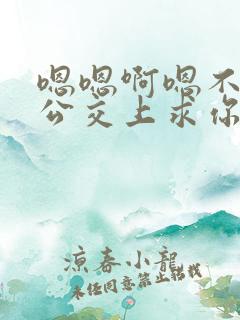 嗯嗯啊嗯不
公交上求你
凉春小龍
未经同意禁止转载